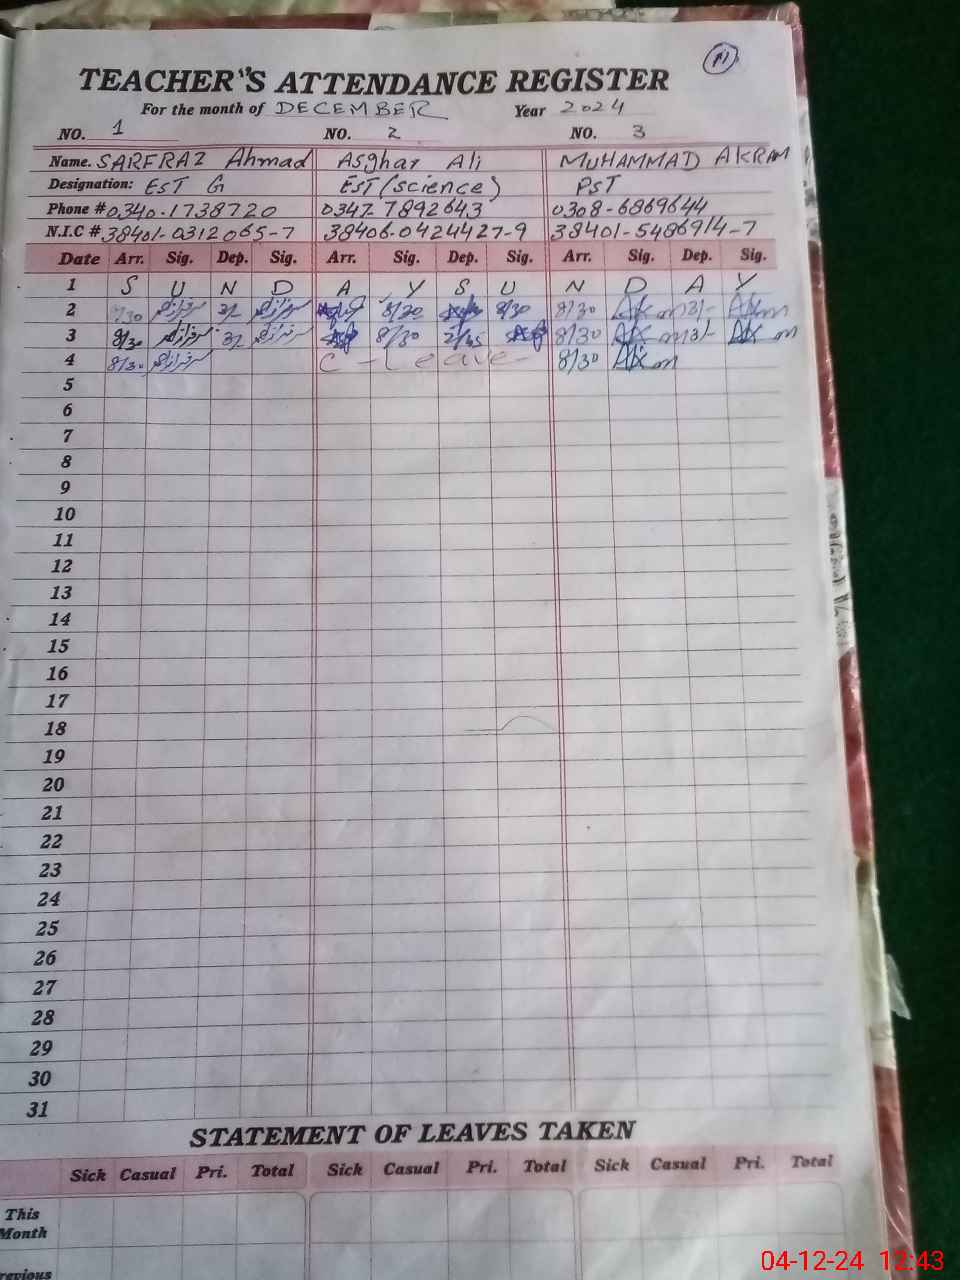 11
TEACHER'S ATTENDANCE REGISTER
For the month of DECEMBER Year 2024
NO. 1 NO. 2 NO. 3
Name. SARFRAZ Ahmad Asghar Ali MUHAMMAD AKRAM
Designation: EST G EST (science) PST
Phone # 0340-1738720 0347-7892643 0308-6869644
N.I.C # 38401-0312065-7 38406-0424427-9 38401-5486914-7
Date Arr. Sig. Dep. Sig. Arr. Sig. Dep. Sig. Arr. Sig. Dep. Sig.
1 S U N D A Y S U N D A Y
2 8/30 3/- 8/30 8/30 8/30 Akm 3/- Akm
3 8/30 3/- 8/30 2/45 8/30 Akm 3/- Akm
4 8/30 C - Leave - 8/30 Akm
5
6
7
8
9
10
11
12
13
14
15
16
17
18
19
20
21
22
23
24
25
26
27
28
29
30
31
STATEMENT OF LEAVES TAKEN
Sick Casual Pri. Total Sick Casual Pri. Total Sick Casual Pri. Total
This
Month
04-12-24 12:43